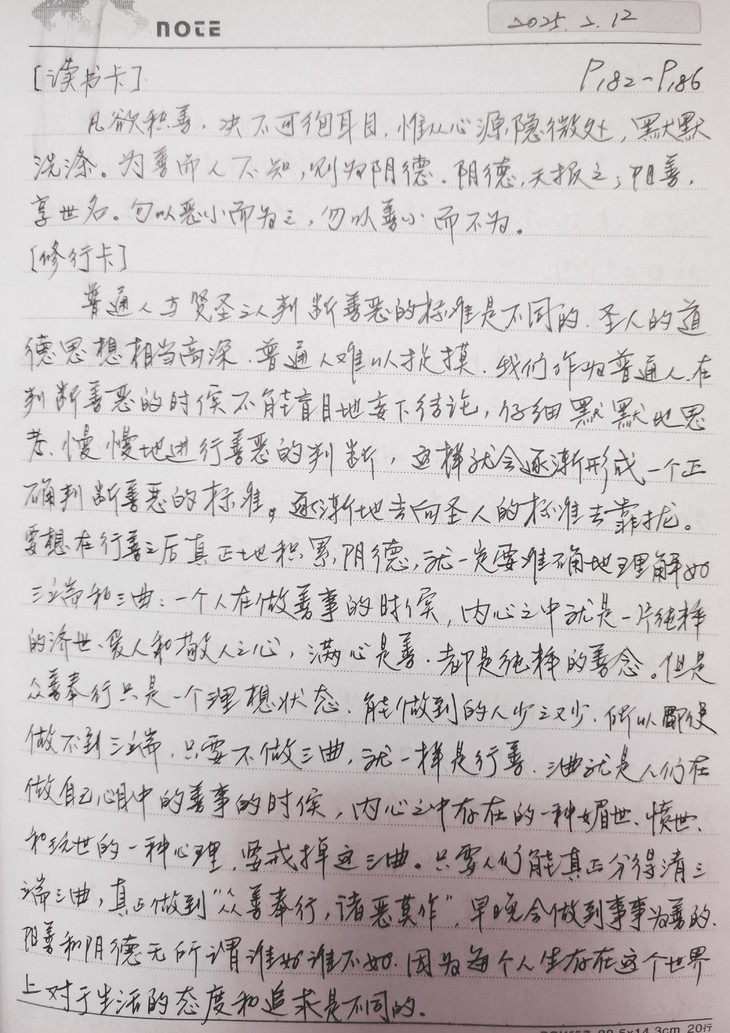 NOTE
2025.2.12
[读书卡] P182-P186
凡欲积善,决不可徇耳目,惟从心源隐微处,默默
洗涤。为善而人不知,则为阴德。阴德,天报之;阳善,
享世名。勿以恶小而为之,勿以善小而不为。
[修行卡]
普通人与贤圣之人判断善恶的标准是不同的.圣人的道
德思想相当高深.普通人难以捉摸.我们作为普通人.在
判断善恶的时候不能盲目地妄下结论,仔细默默地思
考.慢慢地进行善恶的判断,这样就会逐渐形成一个正
确判断善恶的标准。逐渐地去向圣人的标准去靠拢。
要想在行善之后真正地积累,阴德,就一定要准确地理解好
三端和三曲:一个人在做善事的时候,内心之中就是一片纯粹
的济世、爱人和敬人之心,满心是善.都是纯粹的善念。但是
众善奉行只是一个理想状态.能做到的人少之又少.所以即使
做不到三端,只要不做三曲,就一样是行善.三曲就是人们在
做自己心目中的善事的时候,内心之中存在的一种媚世、愤世、
和玩世的一种心理,要戒掉这三曲。只要人们能真正分得清三
端三曲,真正做到"众善奉行,诸恶莫作",早晚会做到事事为善的.
阳善和阴德无所谓谁好谁不好.因为每个人生存在这个世界
上对于生活的态度和追求是不同的.
20.5x14.3cm 20行